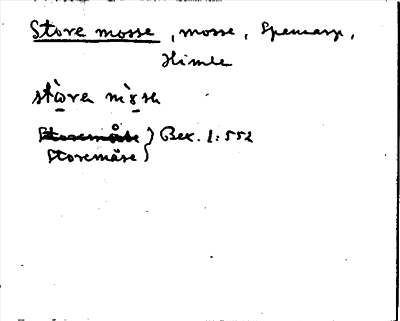 Store mosse, mosse, Spannarp,
Himle
stòra mòsa
Storemåse } Bex. 1:552
Storemåse